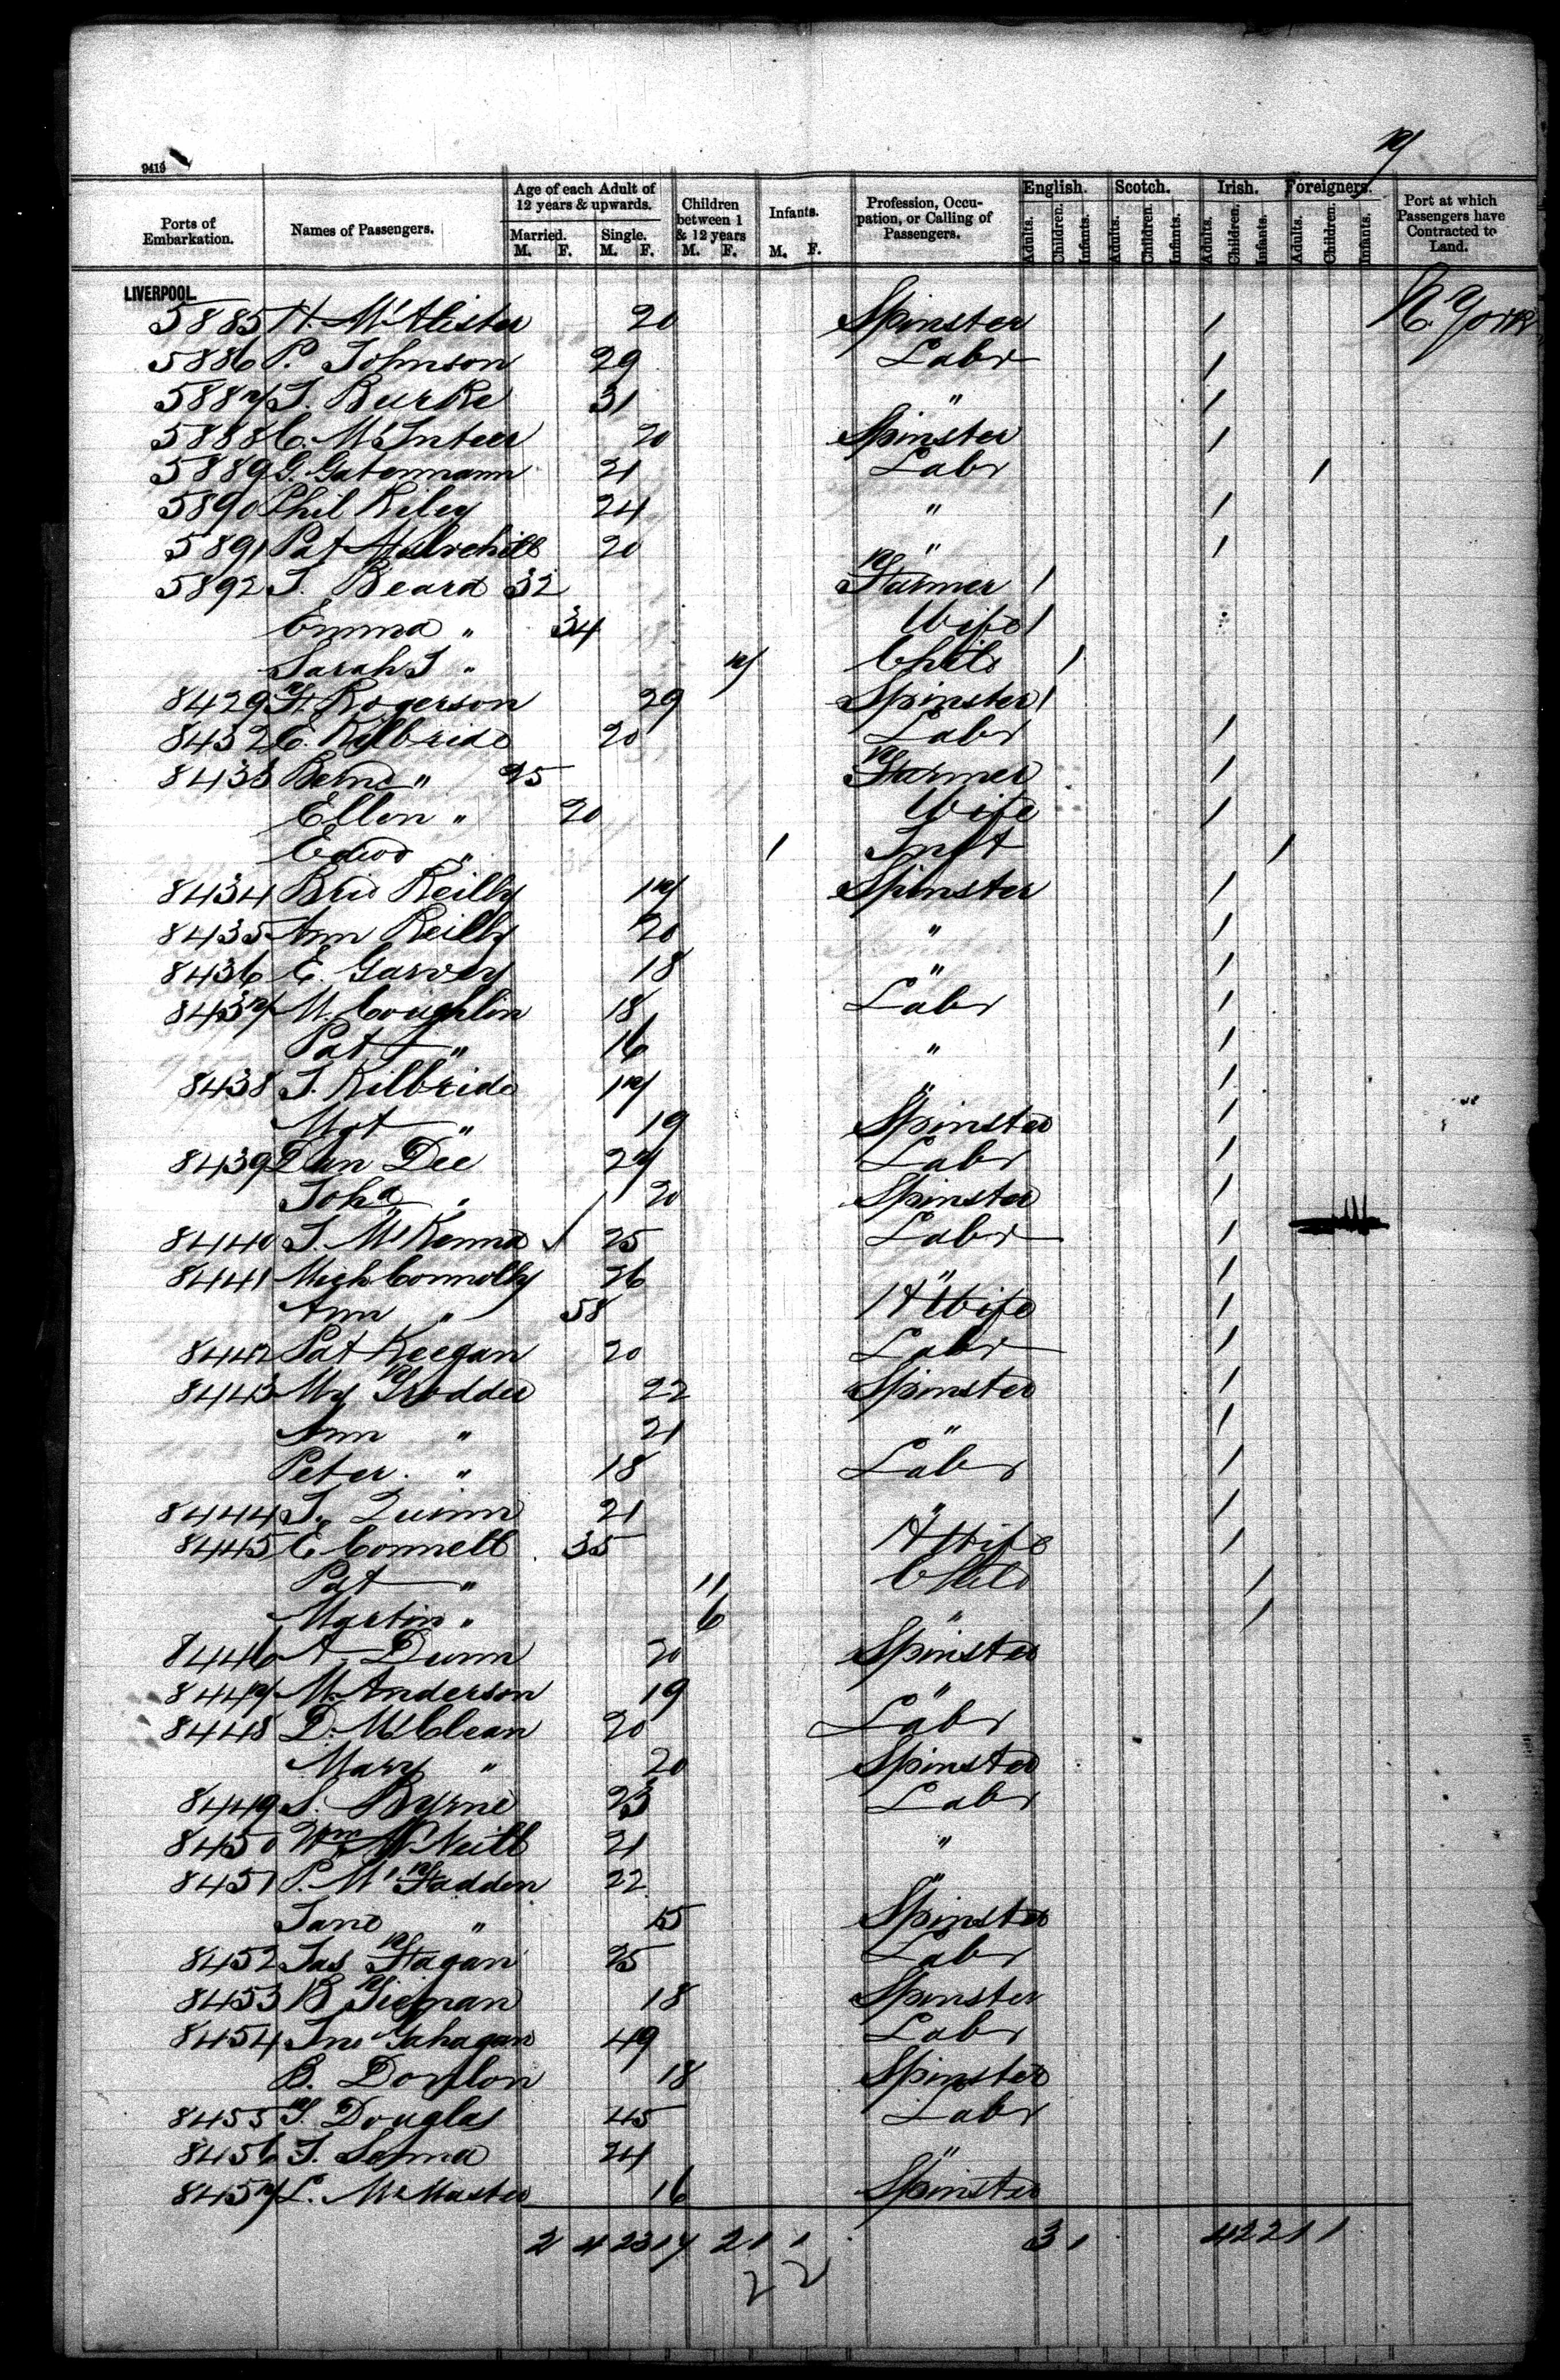 7
9419
Ports of Embarkation. Names of Passengers. Age of each Adult of 12 years & upwards. Married. M. F. Single. M. F. Children between 1 & 12 years M. F. Infants. M. F. Profession, Occupation, or Calling of Passengers. English. Adults. Children. Infants. Scotch. Adults. Children. Infants. Irish. Adults. Children. Infants. Foreigners. Adults. Children. Infants. Port at which Passengers have Contracted to Land.
LIVERPOOL
5885 H. McAlister 20 Spinster / N. York
5886 P. Johnson 29 Labr /
5887 T. Burke 31 " /
5888 C. McInteer 20 Spinster /
5889 G. Gatermann 21 Labr /
5890 Phil Riley 24 " /
5891 Pat Mulvehill 20 " /
5892 T. Beard 32 Farmer /
Emma " 34 Wife /
Sarah J " 7 Child /
8429 F Rogerson 29 Spinster /
8432 E. Kilbride 20 Labr /
8433 Bernd " 25 Farmer /
Ellen " 20 Wife /
Edwd " 1 Inft /
8434 Brid Reilly 17 Spinster /
8435 Ann Reilly 20 " /
8436 E. Garvey 18 " /
8437 M. Coughlin 18 Labr /
Pat " 16 " /
8438 T. Kilbride 17 " /
Mgt " 19 Spinster /
8439 Dan Dee 27 Labr /
Joha " / 20 Spinster /
8440 J. McKenna / 25 Labr /
8441 Mich Connolly 26 " /
Ann " 58 H Wife /
8442 Pat Keegan 20 Labr /
8443 My Frodder 22 Spinster /
Ann " 21 " /
Peter. " 18 Labr /
8444 T. Quinn 21 " /
8445 E Connell 35 H Wife /
Pat " 11 Child /
Martin " 6 " /
8446 A. Dunn 20 Spinster
8447 M. Anderson 19 "
8448 D. McClean 20 Labr
Mary " 20 Spinster
8449 S. Byrne 23 Labr
8450 Wm McNeill 21 "
8451 P. McFadden 22 "
Jane " 15 Spinster
8452 Jas Fagan 25 Labr
8453 B Tiernan 18 Spinster
8454 Jno Gahagan 49 Labr
B. Donlon 18 Spinster
8455 T. Douglas 45 Labr
8456 T. 24 "
8457 L. McMaster 16 Spinster
2 4 23 17 2 1 1 3 1 42 2 1 1
22